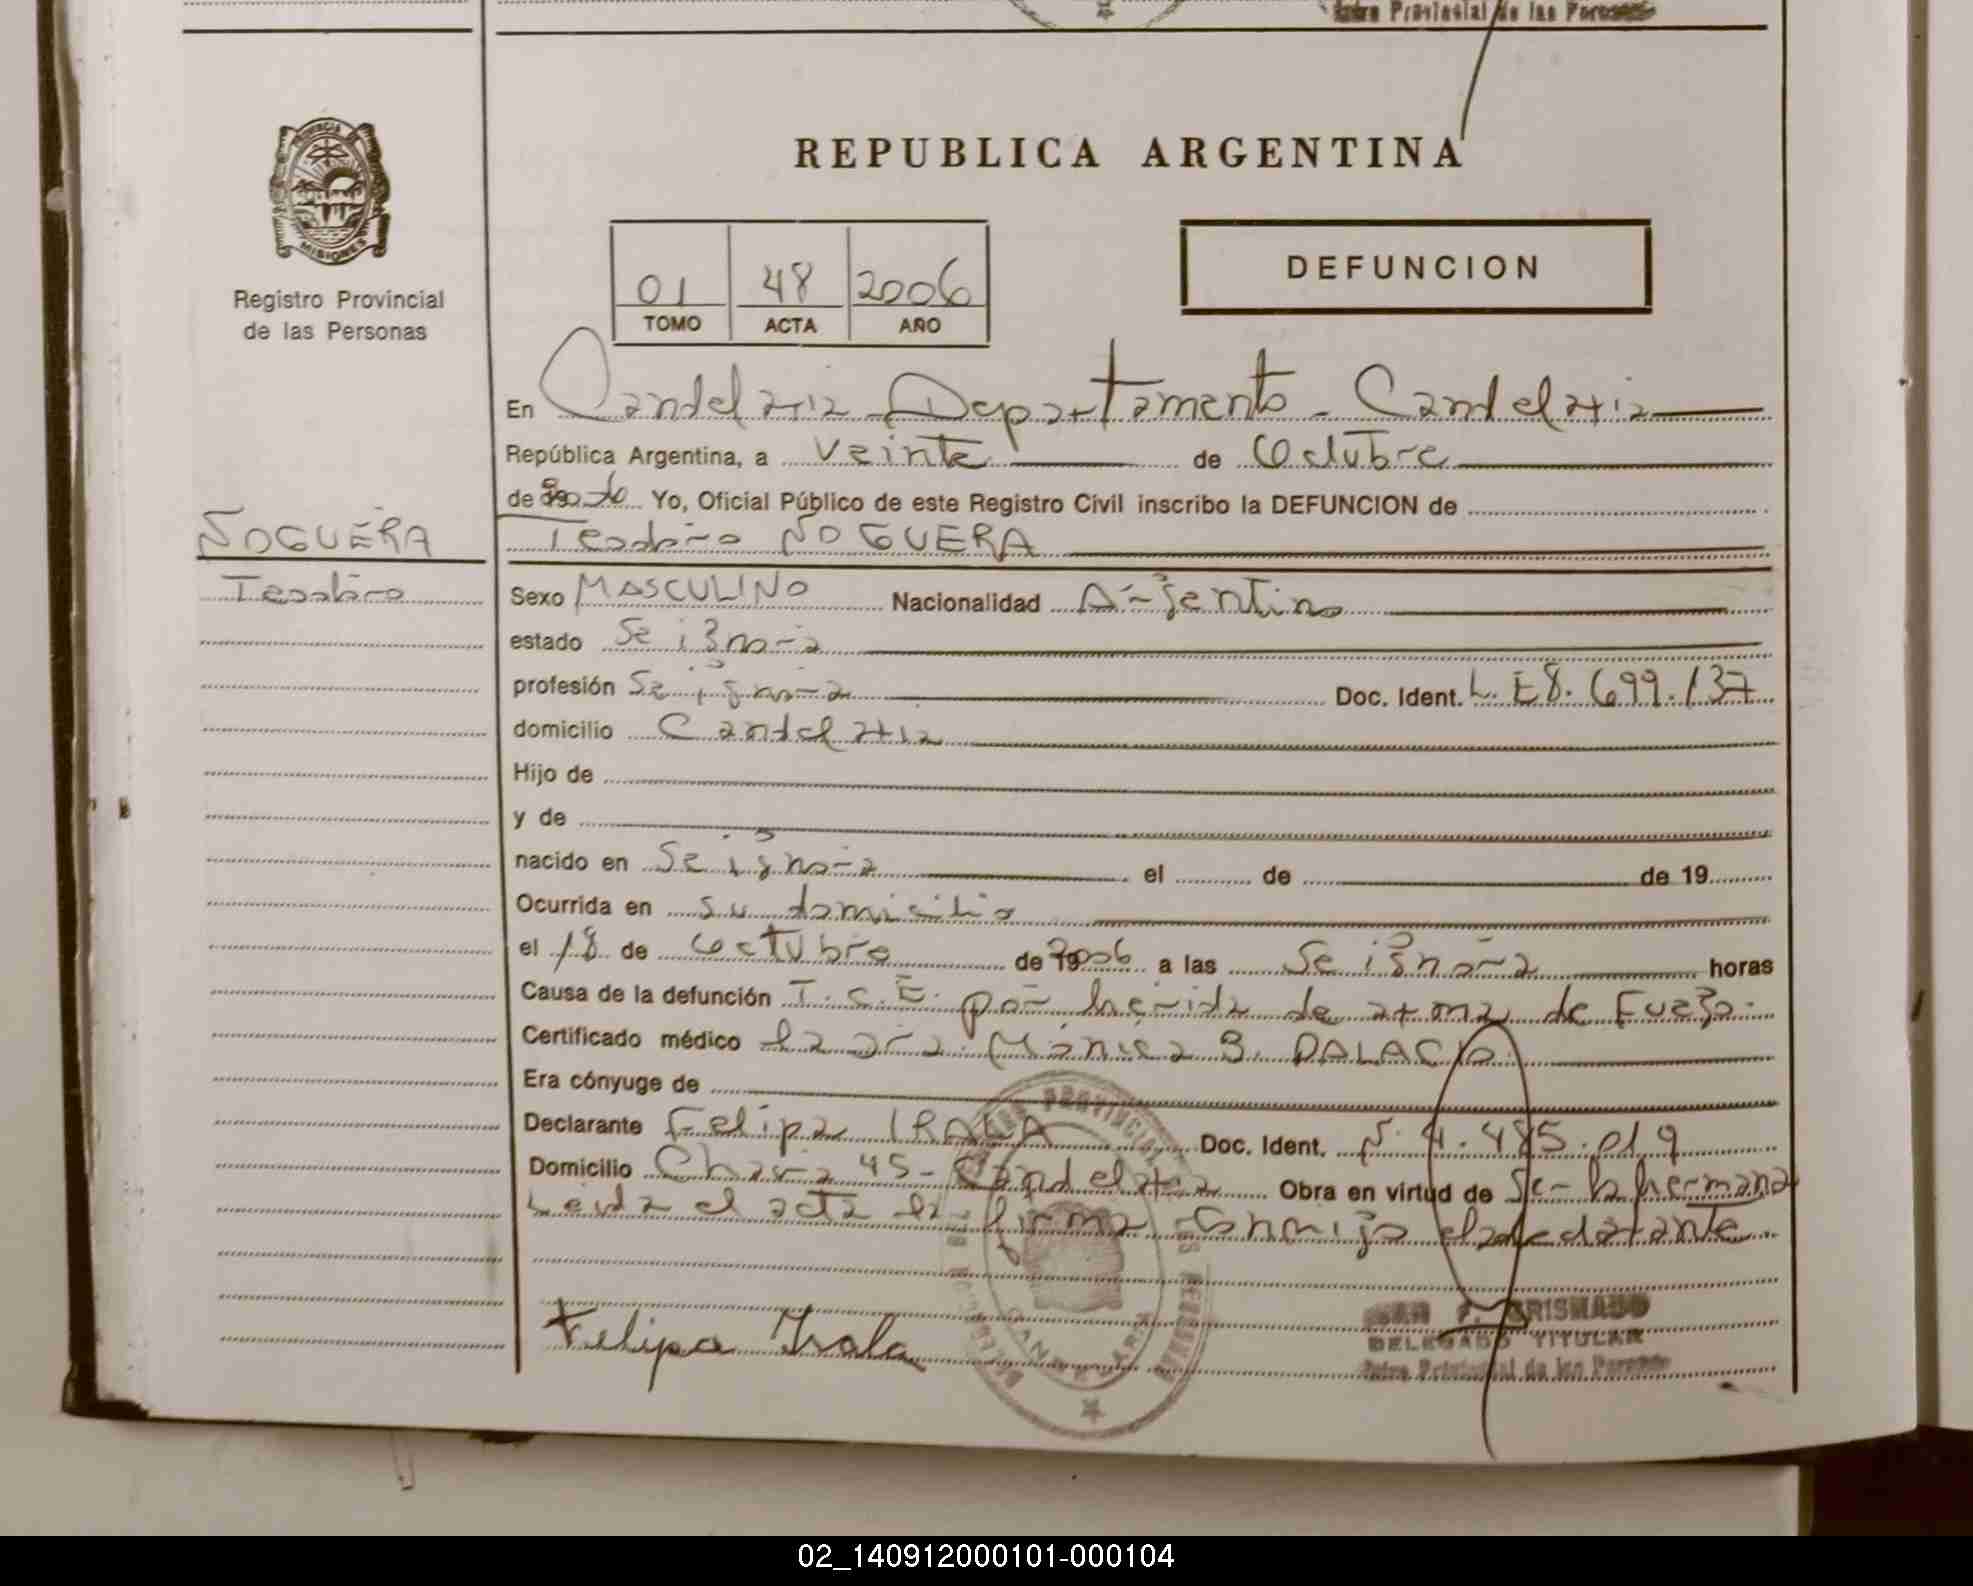 REPUBLICA ARGENTINA
PROVINCIA DE MISIONES
Registro Provincial
de las Personas
01 48 2006
TOMO ACTA AÑO
DEFUNCION
En Candelaria Departamento Candelaria
República Argentina, a veinte de Octubre
de Yo, Oficial Público de este Registro Civil inscribo la DEFUNCION de
NOGUERA
Teodoro NOGUERA
Teodoro
Sexo MASCULINO Nacionalidad Argentino
estado Se ignora
profesión Se ignora Doc. Ident. L.E 8.699.137
domicilio Candelaria
Hijo de
y de
nacido en Se ignora el de de 19
Ocurrida en su domicilio
el 18 de Octubre de 2006 a las Se ignora horas
Causa de la defunción T.C.E. por herida de arma de Fuego.
Certificado médico la dra. Mónica B. PALACIO
Era cónyuge de
Declarante Felipa IRALA Doc. Ident. N. 4.485.019
Domicilio 45- Candelaria Obra en virtud de Ser la hermana
Leida el acta la firma conmigo el declarante
Felipa Irala
DELEGADO TITULAR
CANDELARIA
02_140912000101-000104